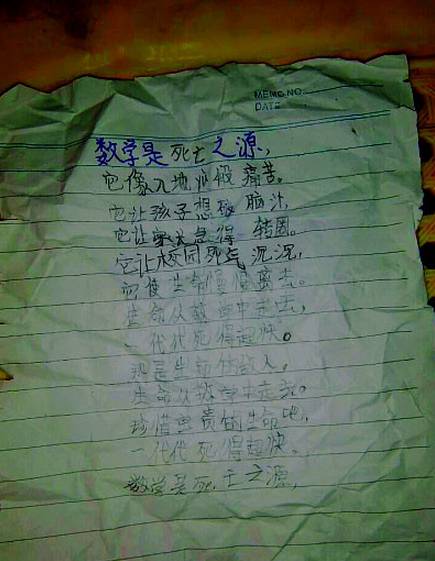 MEMO.NO.
DATE
数学是死亡之源,
它像九地狱般痛苦。
它让孩子想破脑汁,
它让家长急得转圈。
它让校园死气沉沉,
它使生命慢慢离去。
生命从数学中走去,
一代代死得超快。
是生命的敌人,
生命从数学中走去。
珍惜宝贵的生命吧,
一代代死得超快。
数学是死亡之源,